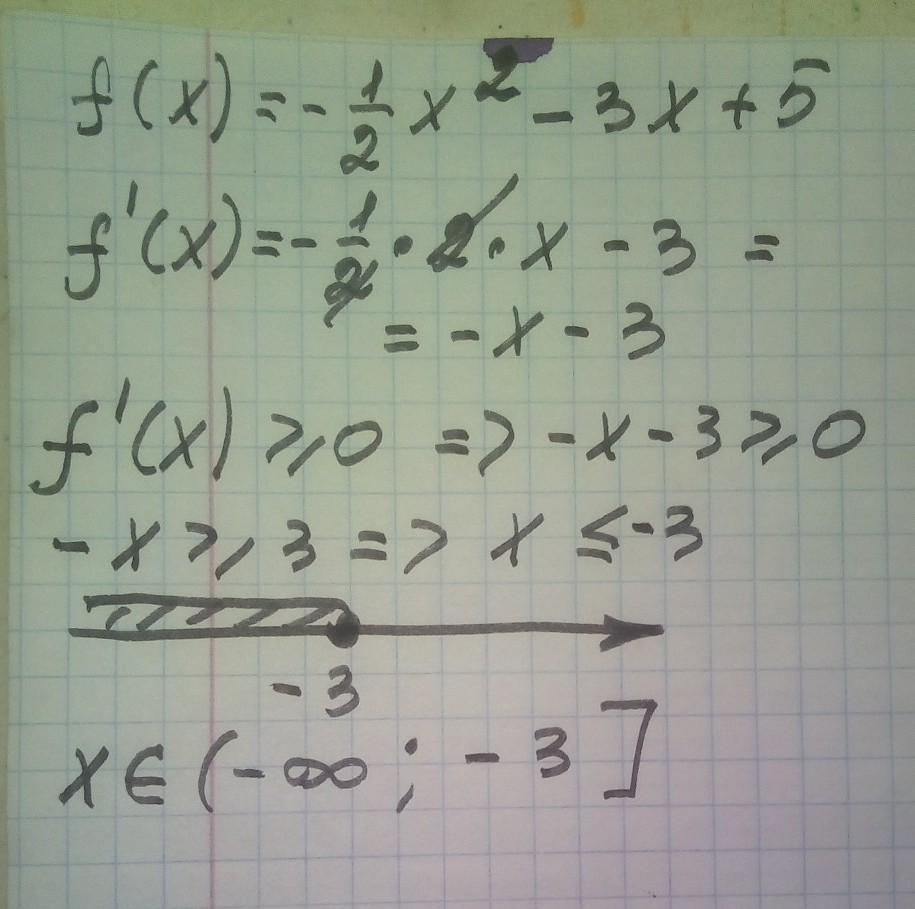 f(x) = - 1/2 x² - 3x + 5
f'(x) = - 1/2 · 2 · x - 3 =
= - x - 3
f'(x) ⩾ 0 => - x - 3 ⩾ 0
- x ⩾ 3 => x ≤ -3
- 3
x ∈ (- ∞ ; - 3]